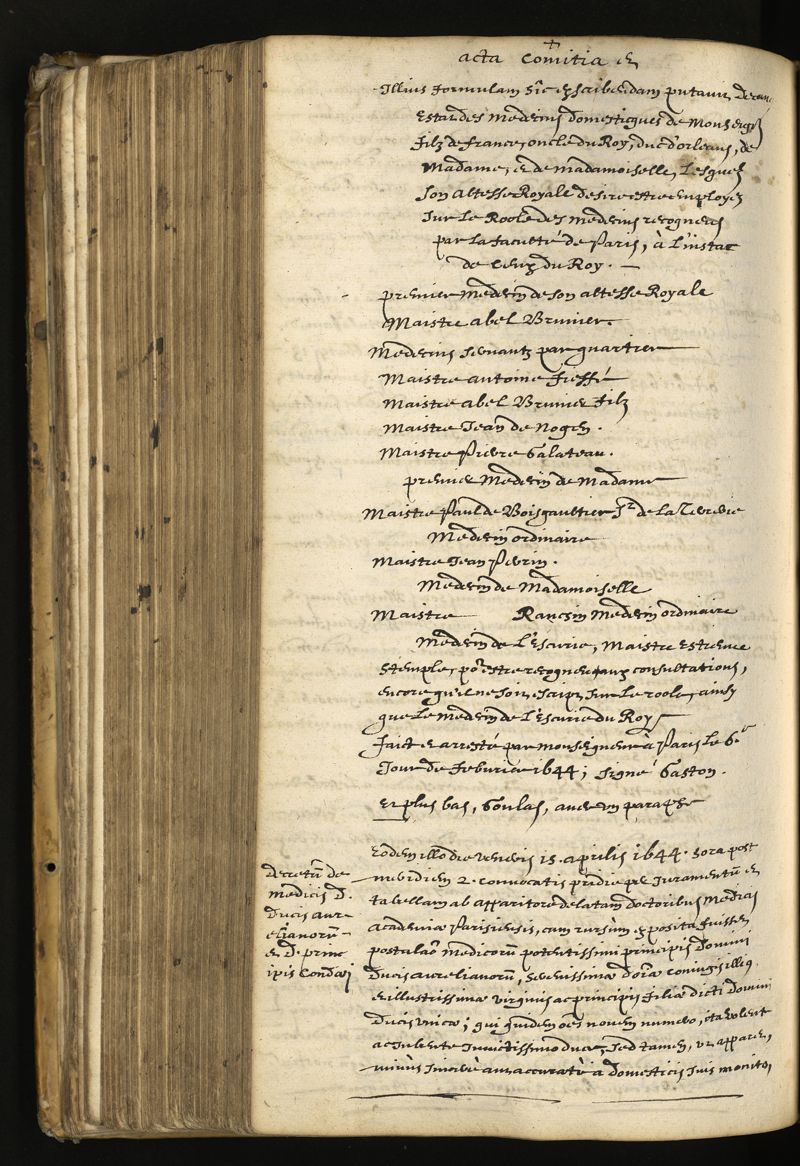 acta Comitia et
Illius formulam sic exscribendam putavi,
Estat des medecins domesticques de Monseigr
filz de france, oncle du Roy, duc d'orleans, de
Madame, et de madamoiselle, Lesquelz
son altesse Royale desire estre employez
sur Le Roole des medecins recogneus
par la faculté de Paris, à L'instar
de ceux du Roy.
premier Medecin de son altesse Royale
Maistre abel Brunier.
Medecins servantz par quartier
Maistre antoine
Maistre abel Brunier filz
Maistre Jean de Nogen.
Maistre Pierre Galateau.
premier Medecin de Madame
Maistre Paul de Boisgaultier Sr de La
Medecin ordinaire
Maistre Jean Perrin.
Medecin de Madamoiselle
Maistre Rancsin Medecin ordinaire
Medecin de L'Escurie, Maistre Estienne
Stemple, por estre recogneu aux consultations,
encore qu'il ne soit escript sur Le roole, ainsy
que Le medecin de L'Escurie du Roy
faict et arresté par monseigneur à Paris le 6e
Jour de feburier 1644; signé Gaston.
Et plus bas, Goulas, avec un paraphe
Decretū de
medicis D.
Ducis aure-
elianorū
et D. prin-
cipis Condaei
Eodem illo die veneris 15. aprilis 1644. hora post
meridiem 2. convocatis pridie per Juramentū et
tabellam ab apparitore delatam doctoribus Medicis
academiae Parisiensis, cum rursùm exposita fuisset
postulaō medicorū potentissimi principis domini
Ducis aurelianorū, serenissimae doīae coniugis illiꝰ
et illustrissimae virginis ac principis filiae dicti domini
Ducis unicae; qui quidem oēs novem numero, ita volente
ac Jubente Invictissimo duce, sed tamen, ut apparet,
minùs sincerè aut accuratè a domesticis suis monito,